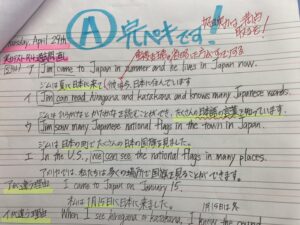 Tuesday, April 29th
A 完ペキです!
ア Jim came to Japan in summer and he lives in Japan now.
ジムは夏に日本に来て、彼は今、日本に住んでいます
イ Jim can read hiragana and katakana and knows many Japanese words.
ジムはひらがなとカタカナを読むことができ、たくさんの日本語の言葉を知っています。
ウ Jim saw many Japanese national flags in the town in Japan.
ジムは日本の町でたくさんの日本の国旗を見ました。
エ In the U.S., we can see the national flags in many places.
アメリカでは、私たちは多くの場所で国旗を見ることができます。
アが違う理由 I came to Japan on January 15.
私は1月15日に日本に来ました。
イが違う理由 When I see hiragana or katakana, I